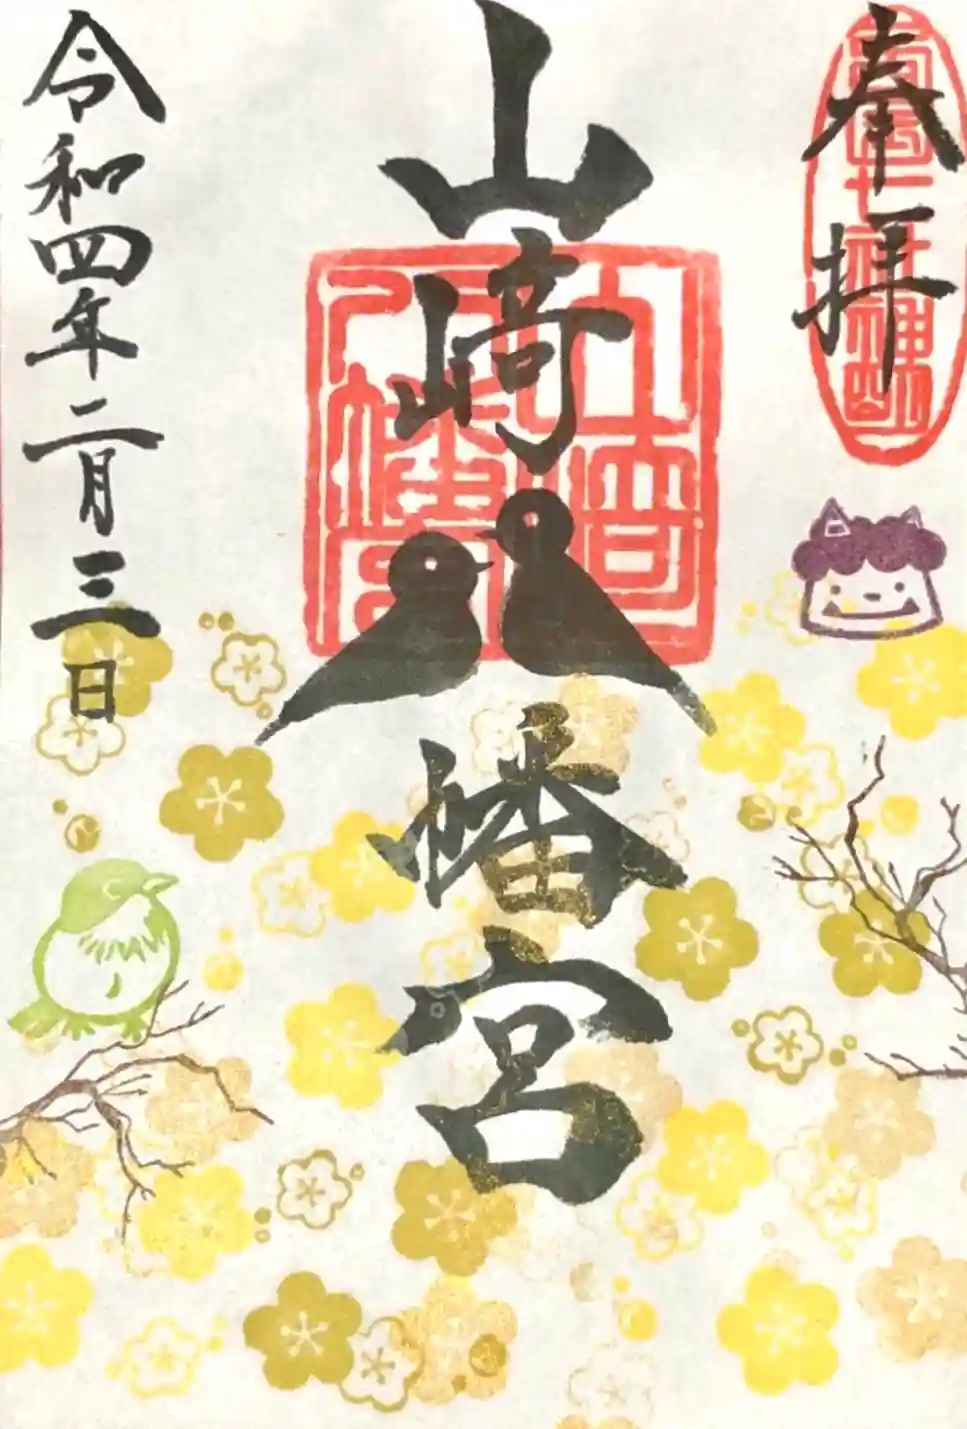 奉拝
山﨑八幡宮
令和四年二月三日